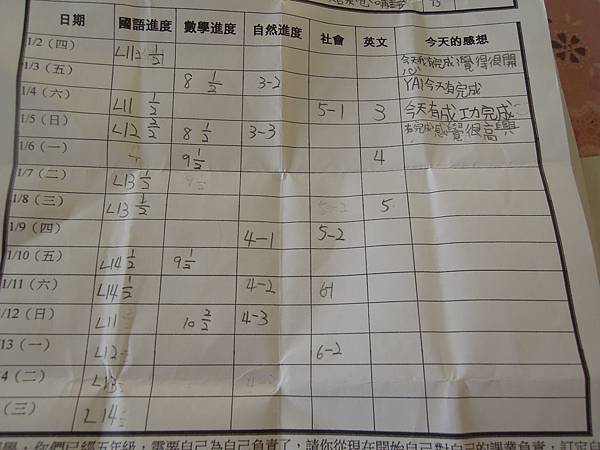 15
日期 國語進度 數學進度 自然進度 社會 英文 今天的感想
1/2（四） L11 1/2 今天有完成覺得很開心
1/3（五） 8 1/2 3-2 YA!今天有完成
1/4（六） L11 1/2 5-1 3 今天有成功完成
1/5（日） L12 2/2 8 1/2 3-3 有完成感覺很高興
1/6（一） 9 1/2 4
1/7（二） L13 1/2
1/8（三） L13 1/2 5-2 5
1/9（四） 4-1 5-2
1/10（五） L14 1/2 9 1/2
1/11（六） L14 1/2 4-2 6-1
1/12（日） L11 10 2/2 4-3
/13（一） L12 6-2
4（二） L13
（三） L14
你們已經五年級，需要自己為自己負責了，請你從現在開始自己對自己的課業負責，訂定自